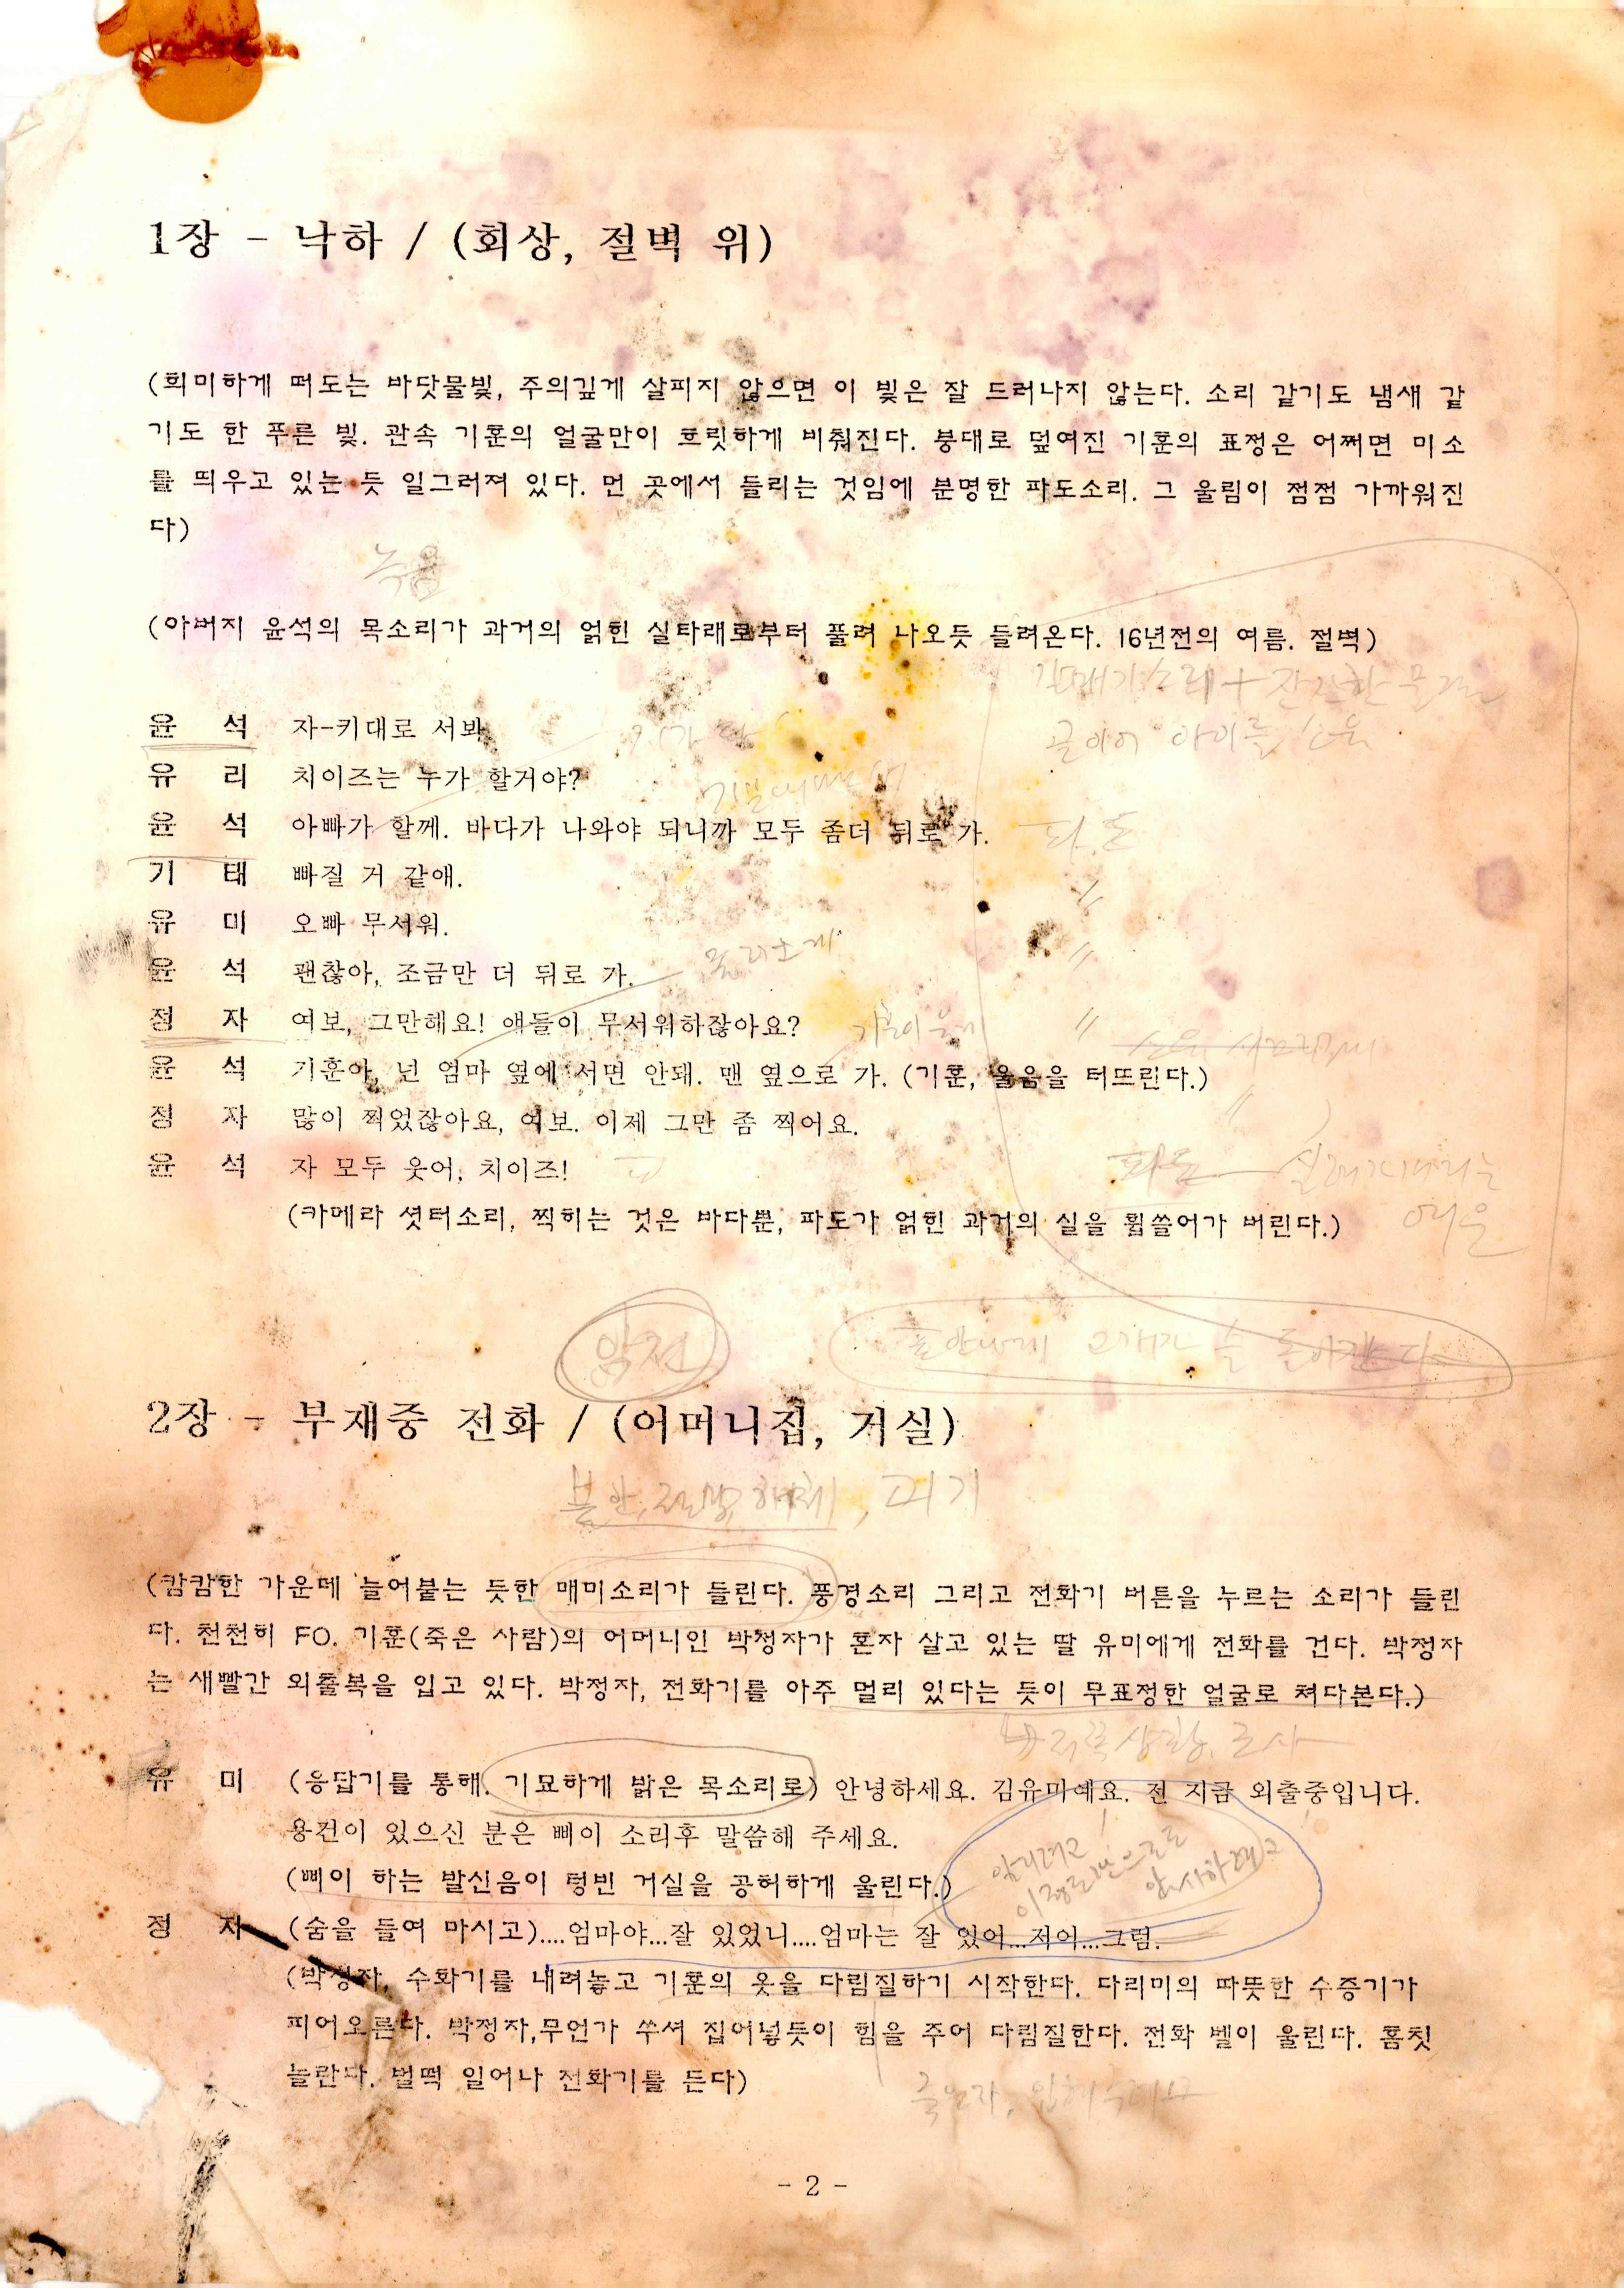 1장 - 낙하 / (회상, 절벽 위)
(희미하게 떠도는 바닷물빛, 주의깊게 살피지 않으면 이 빛은 잘 드러나지 않는다. 소리 같기도 냄새 같
기도 한 푸른 빛. 관속 기훈의 얼굴만이 흐릿하게 비춰진다. 붕대로 덮여진 기훈의 표정은 어쩌면 미소
를 띄우고 있는 듯 일그러져 있다. 먼 곳에서 들리는 것임에 분명한 파도소리. 그 울림이 점점 가까워진
다)
녹음
(아버지 윤석의 목소리가 과거의 얽힌 실타래로부터 풀려 나오듯 들려온다. 16년전의 여름. 절벽)
윤 석 자-키대로 서봐
유 리 치이즈는 누가 할거야?
윤 석 아빠가 할께. 바다가 나와야 되니까 모두 좀더 뒤로 가. 파도
기 태 빠질 거 같애. 〃
유 미 오빠 무서워. 〃
윤 석 괜찮아, 조금만 더 뒤로 가.
정 자 여보, 그만해요! 애들이 무서워하잖아요? 〃
윤 석 기훈아, 넌 엄마 옆에 서면 안돼. 맨 옆으로 가. (기훈, 울음을 터뜨린다.)
정 자 많이 찍었잖아요, 여보. 이제 그만 좀 찍어요. 〃
윤 석 자 모두 웃어, 치이즈! 파도
(카메라 셧터소리, 찍히는 것은 바다뿐, 파도가 얽힌 과거의 실을 휩쓸어가 버린다.) 여운
암전
고개가 슬
2장 - 부재중 전화 / (어머니집, 거실)
불안, 절망, 해체, 포기
(캄캄한 가운데 늘어붙는 듯한 매미소리가 들린다. 풍경소리 그리고 전화기 버튼을 누르는 소리가 들린
다. 천천히 FO. 기훈(죽은 사람)의 어머니인 박정자가 혼자 살고 있는 딸 유미에게 전화를 건다. 박정자
는 새빨간 외출복을 입고 있다. 박정자, 전화기를 아주 멀리 있다는 듯이 무표정한 얼굴로 쳐다본다.)
유 미 (응답기를 통해. 기묘하게 밝은 목소리로) 안녕하세요. 김유미예요. 전 지금 외출중입니다.
용건이 있으신 분은 삐이 소리후 말씀해 주세요.
(삐이 하는 발신음이 텅빈 거실을 공허하게 울린다.)
정 자 (숨을 들여 마시고)....엄마야...잘 있었니....엄마는 잘 있어...저어...그럼.
(박정자, 수화기를 내려놓고 기훈의 옷을 다림질하기 시작한다. 다리미의 따뜻한 수증기가
피어오른다. 박정자,무언가 쑤셔 집어넣듯이 힘을 주어 다림질한다. 전화 벨이 울린다. 흠칫
놀란다. 벌떡 일어나 전화기를 든다)
- 2 -